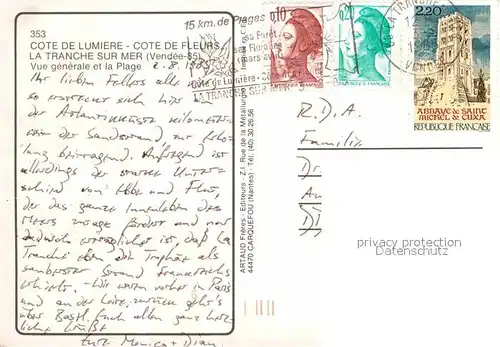 353
COTE DE LUMIERE - COTE DE FLEURS
LA TRANCHE SUR MER (Vendée-85)
Vue générale et la Plage
2.8.1985
Ihr lieben Fellers alle
so erstreckt sich hier
der Atlantikküste kilometer
der Sandstrand, zur
allerdings der starke Unter-
schied von Ebbe und Flut,
der das ganze Innenleben des
Meers zutage fördert und
ist, daß La
Tranche eben die Trophäe als
sauberster Strand Frankreichs
erhielt. Wir waren vorher in Paris
und an der Loire, zurück geht's
über Basel. Euch allen ganz herz-
liche Grüße
Eure Monica + Dian
ARTAUD Frères - Editeurs - Z.I. Rue de la Métallurgie
44470 CARQUEFOU (Nantes) - Tél. (40) 30.26.56
15 km. de Plages
ses Floralies
Côte de Lumière - Côte des
LA TRANCHE SUR MER
0,10
0,20
2,20
ABBAYE DE SAINT
MICHEL DE CUXA
REPUBLIQUE FRANÇAISE
R.D.A.
Familie
Dr.
privacy protection
Datenschutz